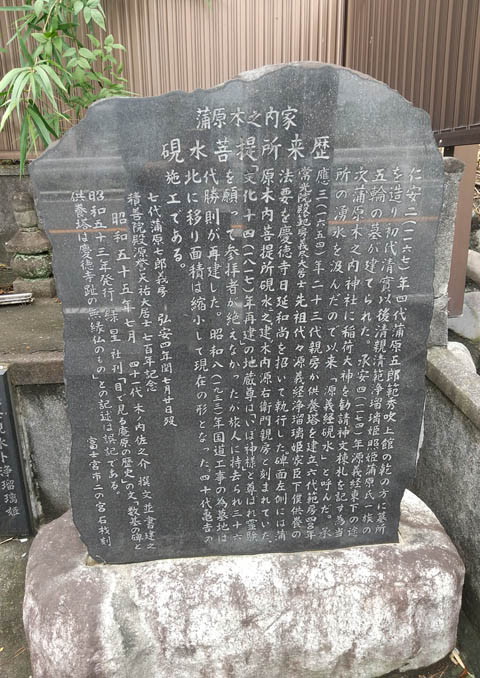 蒲原木之内家
硯水菩提所来歴
仁安二(一一六七)年四代蒲原五郎範秀吹上館の乾の方に墓所
を造り初代清實以後清親清範浄瑠璃姫昭姫蒲原氏一族の
五輪の墓が建てられた。承安四(一一七四)年源義経東下の途
次蒲原木之内神社に稲荷大神を勧請神文棟札を記す為当
所の湧水を汲んだので以来「源義経硯水」と呼んだ。承
應三(一六五四)年二十三代親房が供養塔を建立六代範房四百年
常光院殿範房義尽大居士先祖代々源義経浄瑠璃姫家臣下僕供養の
法要を慶徳寺日延和尚を招いて執行した碑面左側には蒲
原木内菩提所硯水之建木内源右衛門親房と刻まれていた
文化十四(一八一七)年再建の地蔵尊はいほ神様と尊ばれ霊験
を願って参拝者が絶えなかったが旅人に持去られ三十六
代勝則が再建した。昭和八(一九三三)年国道工事の為墓地は
北に移り面積は縮小して現在の形となった。四十代亀吉の
施工である。
七代蒲原七郎義房 弘安四年閏七月廿日歿
積善院殿源誉長祐大居士 七百年記念
昭和五十五年七月 四十一代木ノ内佐之介 撰文並書建之
昭和五十三年発行緑星社刊「目で見る庵原の歴史」の文「数基の碑と
供養塔は慶徳寺趾の無縁仏のもの」との記述は誤記である。
富士宮市二の宮石材刻
硯水外浄瑠璃姫